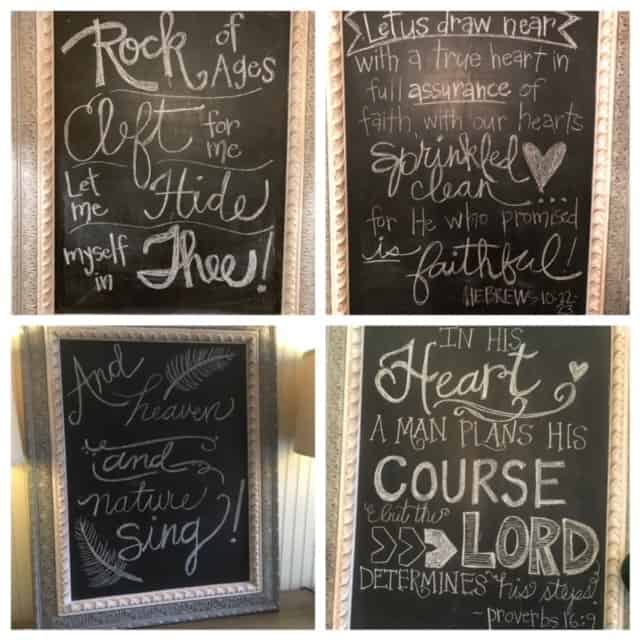 Rock of
Ages
Cleft for
me
Let
me Hide
myself
in Thee!
Let us draw near
with a true heart in
full assurance of
faith, with our hearts
sprinkled
clean...
for He who promised
is faithful!
HEBREWS 10:22-
23
And
heaven
and
nature
sing!
IN HIS
Heart
A MAN PLANS HIS
COURSE
but the
LORD
DETERMINES his steps!
~proverbs 16:9